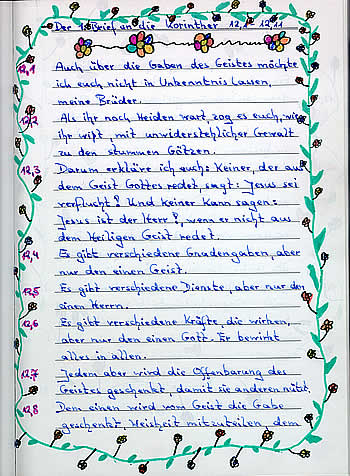 Der 1. Brief an die Korinther 12,1 - 12,11
12,1 Auch über die Gaben des Geistes möchte
ich euch nicht in Unkenntnis lassen,
meine Brüder.
12,2 Als ihr noch Heiden wart, zog es euch, wie
ihr wißt, mit unwiderstehlicher Gewalt
zu den stummen Götzen.
12,3 Darum erkläre ich euch: Keiner, der aus
dem Geist Gottes redet, sagt: Jesus sei
verflucht! Und keiner kann sagen:
Jesus ist der Herr!, wenn er nicht aus
dem Heiligen Geist redet.
12,4 Es gibt verschiedene Gnadengaben, aber
nur den einen Geist.
12,5 Es gibt verschiedene Dienste, aber nur den
einen Herrn.
12,6 Es gibt verschiedene Kräfte, die wirken,
aber nur den einen Gott. Er bewirkt
alles in allen.
12,7 Jedem aber wird die Offenbarung des
Geistes geschenkt, damit sie anderen nützt.
12,8 Dem einen wird vom Geist die Gabe
geschenkt, Weisheit mitzuteilen, dem